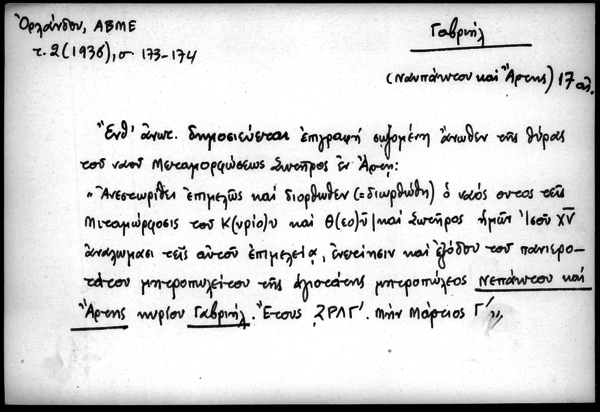 Ὀρλάνδου, ΑΒΜΕ
τ. 2 (1936), σ. 173-174
Γαβριήλ
(Ναυπάκτου καὶ Ἄρτης) 17 αἰ.
Ἔνθ' ἀνωτ. δημοσιεύεται ἐπιγραφὴ σωζομένη ἄνωθεν τῆς θύρας
τοῦ ναοῦ Μεταμορφώσεως Σωτῆρος ἐν Ἄρτῃ:
"Ἀνεστωρίθει ἐπιμελῶς καὶ διορθωθεν (=διωρθώθη) ὁ ναὸς ουτος τεῖς
Μιταμώρφοσις τοῦ Κ(υρίο)υ καὶ Θ(εο)ῦ | καὶ Σωτῆρος ἡμῶν Ἰσοῦ Χ͞Υ
ἀναλώμασι τεῖς αὐτοῦ ἐπιμελείᾳ, ἐνετείησιν καὶ ἐξόδου τοῦ πανιερο-
τάτου μητροπωλείτου τῆς ἁγιοτάτης μητροπώλεος Νεπάκτου καὶ
Ἄρτης κυρίου Γαβριήλ. Ἔτους ΖΡΛΓ'. Μὴν Μάρτιος Γ'"